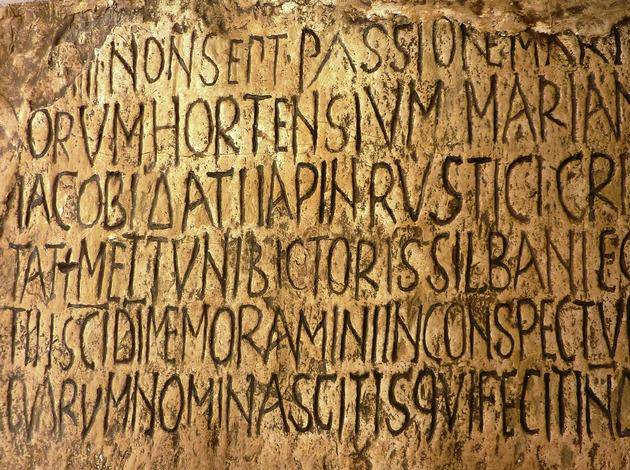 IIII NON SEPT PASSIONE MART
ORVM HORTENSIVM MARIAN
IACOBI DATI IAPIN RVSTICI CRI
TAT METTVNI BICTORIS SILBANI EG
TII SCI DI MEMORAMINI IN CONSPECTV
QVARVM NOMINA SCITIS QVI FECIT IN